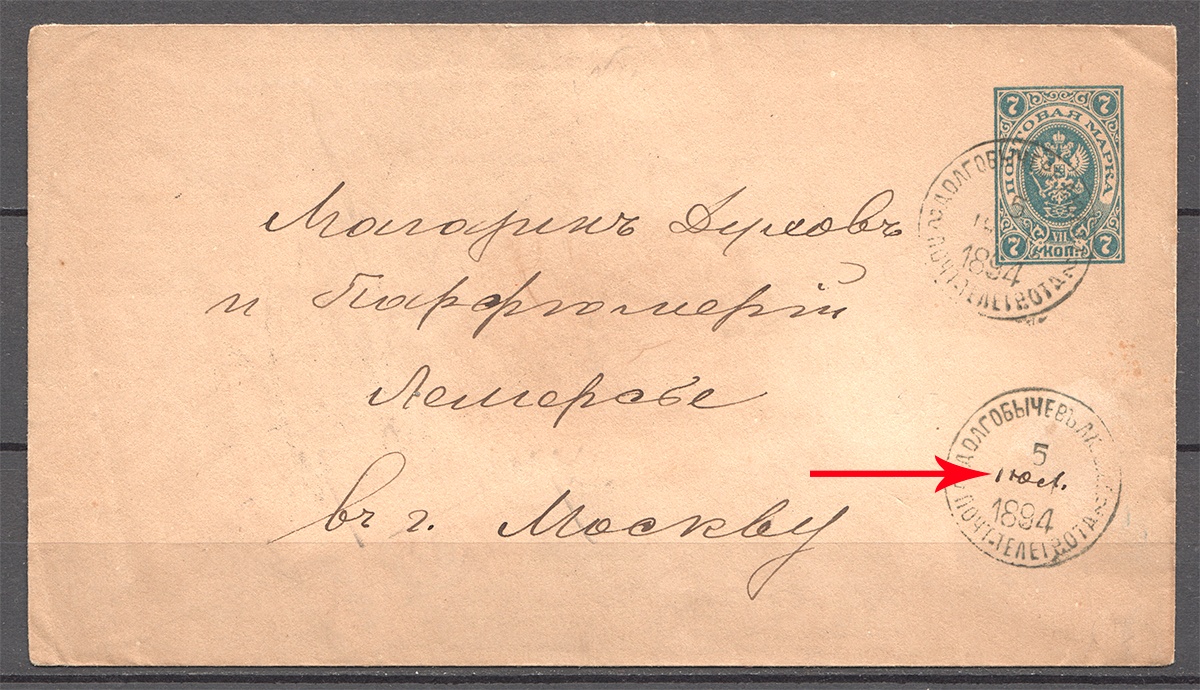 7 7
ПОЧТОВАЯ МАРКА
VII
7 КОП. 7
ДОЛГОБЫЧ
5
1894
ПОЧТ.ТЕЛЕГ. ОТД.
Магазинъ Духовъ
и Парфюмерій
Лемерсье
въ г. Москву
ДОЛГОБЫЧЕВЪ
5
Iюл.
1894
ПОЧТ.ТЕЛЕГ. ОТД.